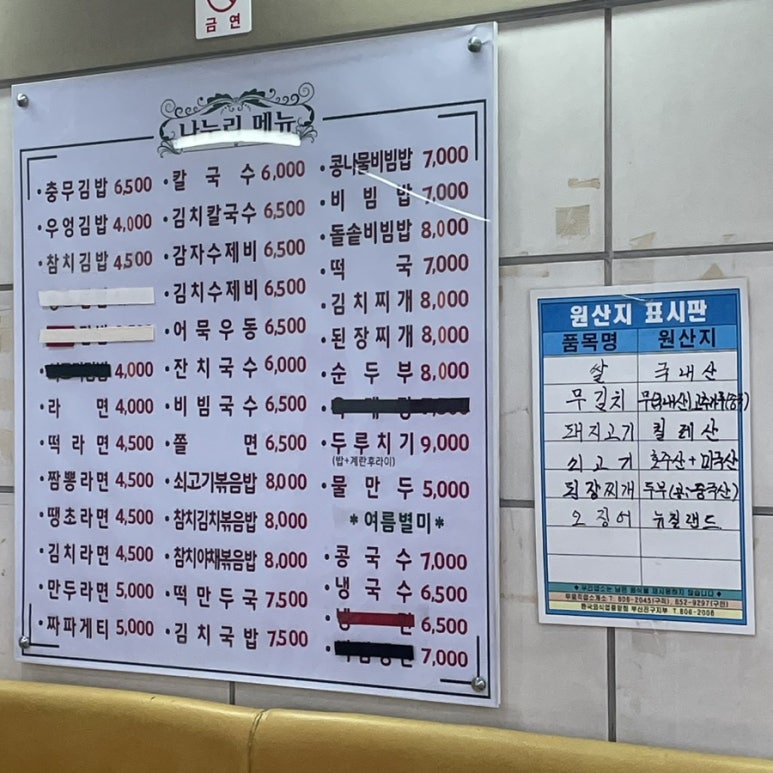 금연
나누리 메뉴
·충무김밥 6,500
·우엉김밥 4,000
·참치김밥 4,500
4,000
·라 면 4,000
·떡라면 4,500
·짬뽕라면 4,500
·땡초라면 4,500
·김치라면 4,500
·만두라면 5,000
·짜파게티 5,000
·칼 국 수 6,000
·김치칼국수 6,500
·감자수제비 6,500
·김치수제비 6,500
·어묵우동 6,500
·잔치국수 6,000
·비빔국수 6,500
·쫄 면 6,500
·쇠고기볶음밥 8,000
·참치김치볶음밥 8,000
·참치야채볶음밥 8,000
·떡만둣국 7,500
·김치국밥 7,500
·콩나물비빔밥 7,000
·비 빔 밥 7,000
·돌솥비빔밥 8,000
·떡 국 7,000
·김치찌개 8,000
·된장찌개 8,000
·순 두 부 8,000
·두루치기 9,000
(밥+계란후라이)
·물 만 두 5,000
*여름별미*
·콩 국 수 7,000
·냉 국 수 6,500
6,500
7,000
원산지 표시판
품목명 원산지
쌀 국내산
무김치 무(국내산)고추가루(중국)
돼지고기 칠레산
쇠고기 호주산+미국산
된장찌개 두부(콩:중국산)
오징어 뉴질랜드
◆부산갬스는 남은 음식을 재사용하지 않습니다◆
무료드럼소개소 T. 806-2045(구미), 852-9297(구민)
한국외식업중앙회 부산진구지부 T.806-2008